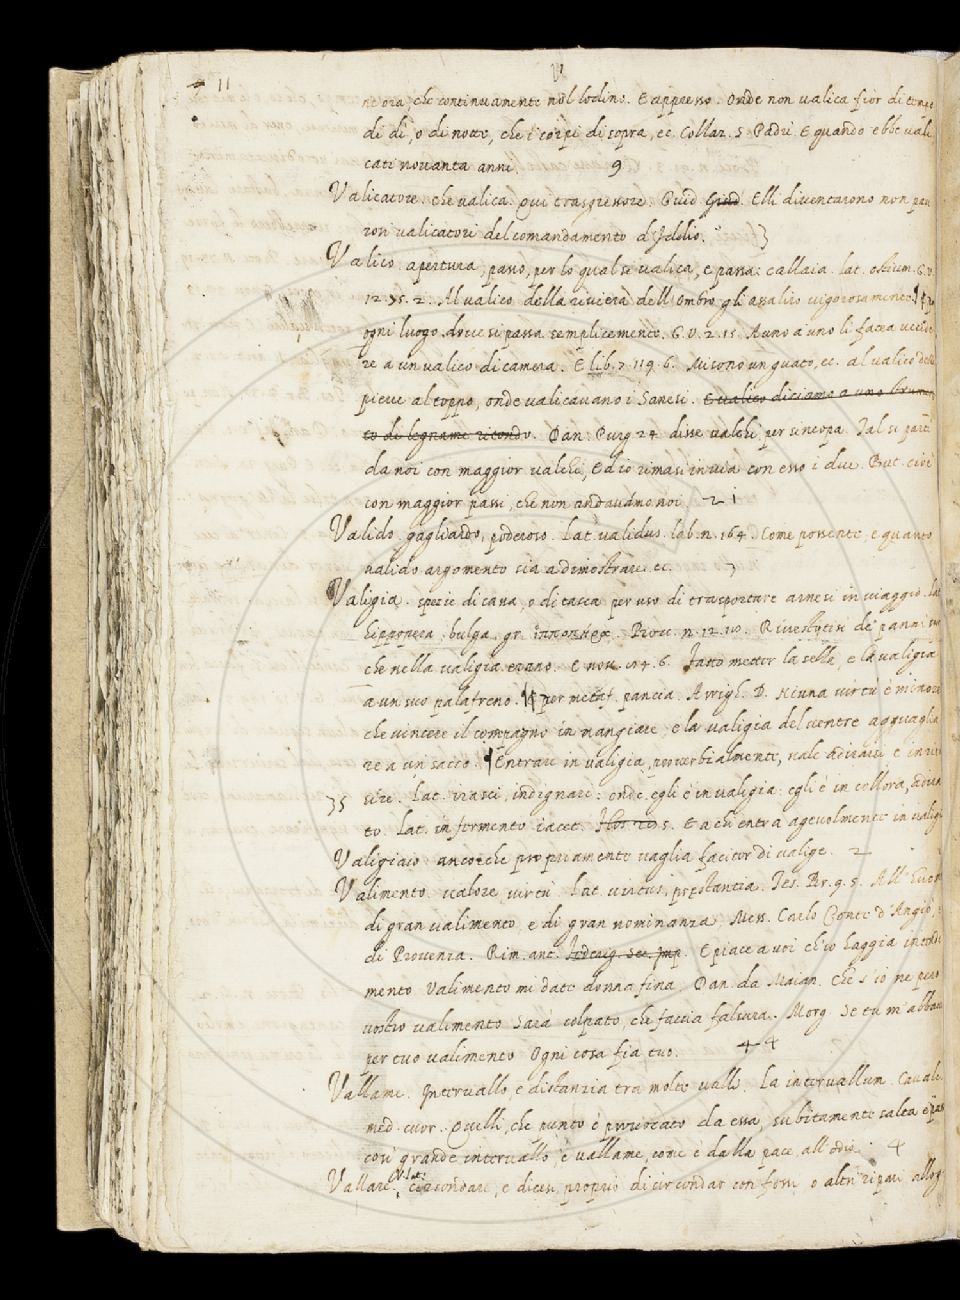 11
V
ne ora, che continuamente nol lodino. E appresso. Onde non valica fior di tempo
di dì, o di notte, che i corpi di sopra, ec. Collaz. S. Padri. E quando ebbe vali
cati novanta anni. 9
Valicatore. che valica. Qui trasgressore. Ovid. Elli diventarono non pau
rosi valicatori del comandamento d'Iddio. 3
Valico. apertura, passo, per lo qual si valica, e passa: callaia. lat. ostium. G.V.
12. 95. 2. Al valico della riviera dell'Ombro gli assalirò vigorosamente.
ogni luogo dove si passa semplicemente. G.V. 2. 15. A uno a uno li facea uccide
re a un valico di camera. E lib. 7. 119. 6. Misono un guato, ec. al valico della
pieve al toppo, onde valicavano i Sanesi. E valico diciamo a uno strumen
to di legname ritondo. Dan. Purg. 24. disse valchi per sincopa. Tal si partì
da noi con maggior valchi, Ed io rimasi in via con esso i due. But. cioè
con maggior passi, che non andavamo noi. 2 1
Valido. gagliardo, poderoso. Lat. validus. lab. n. 164. Come possente, e quanto
valido argomento sia a dimostrare ec.
Valigia. spezie di cassa, o di tasca per uso di trasportare arnesi in viaggio. lat.
hippopera, bulga, gr. ἱπποπήρα. Bocc. n. 12. 10. Rivestitisi de' panni suoi
che nella valigia erano. E nov. 14. 6. Fatto metter la sella, e la valigia
a un suo palafreno. per metaf. pancia. Arrigh. D. Niuna virtù è minore
che vincere il compagno in mangiare, e la valigia del ventre agguaglia
re a un sacco. Entrare in valigia, proverbialmente, vale adirarsi e incru
35 sire. Lat. irasci, indignari: onde egli è in valigia: egli è in collora, adira
to. Lat. in fermento iacet. E a chi entra agevolmente in valigia
Valigiaio. ancorche propriamente vaglia facitor di valige. 2
Valimento. valore, virtù. Lat. virtus, prestantia. Tes. Br. 9. 5. All'
di gran valimento, e di gran nominanza, Mess. Carlo Conte d'Angiò,
di Provenza. Rim. ant. E piace a voi ch'io haggia intendi
mento Valimento mi date donna fina, Dan. da Maian. Che s'io ne pero
vostro valimento Sarà colpato, che faccia falsura. Morg. Se tu m'abban
per tuo valimento Ogni cosa fia tuo. 4 4
Vallame. Intervallo, e distanzia tra molte valli. La intervallum. Cavalc.
med. cuor. Quelli, che punto è provocato da essa, subitamente salta e passa
così grande intervallo, e vallame, come è dalla pace, all'odio. 4
Vallare. circondare, e dicesi proprio di circondar con fossi o altri ripari allog